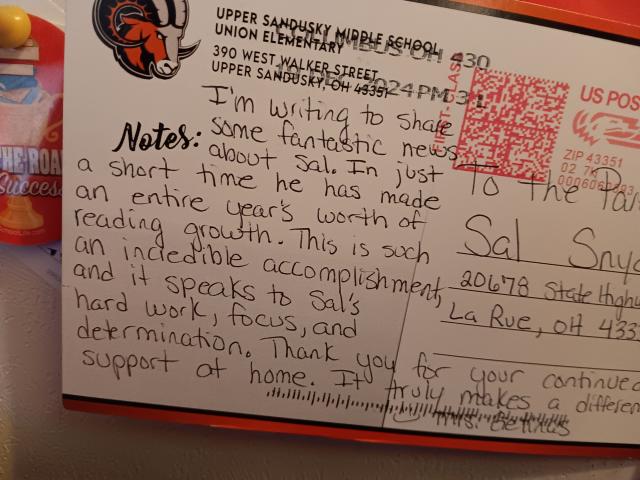 UPPER SANDUSKY MIDDLE SCHOOL
UNION ELEMENTARY
390 WEST WALKER STREET
UPPER SANDUSKY, OH 43351
COLUMBUS OH 430
2024 PM 3 L
FIRST-CLASS
US POS
ZIP 43351
02 7H
Notes:
I'm writing to share
some fantastic news
about Sal. In just
a short time he has made
an entire year's worth of
reading growth. This is such
an incredible accomplishment,
and it speaks to Sal's
hard work, focus, and
determination. Thank you for your continued
support at home. It truly makes a differen
Mrs.
To the Par
Sal Sny
20678 State High
La Rue, OH 433
THE ROA
Success